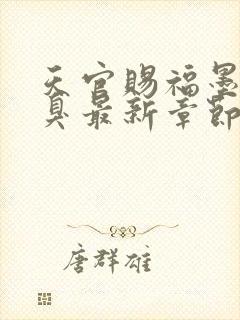 天官赐福墨
臭最新章節
唐群雄